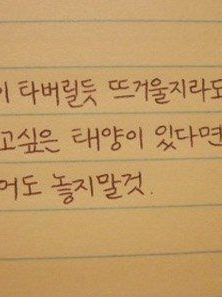 이 타버릴듯 뜨거울지라도
고싶은 태양이 있다면
어도 놓지말것.